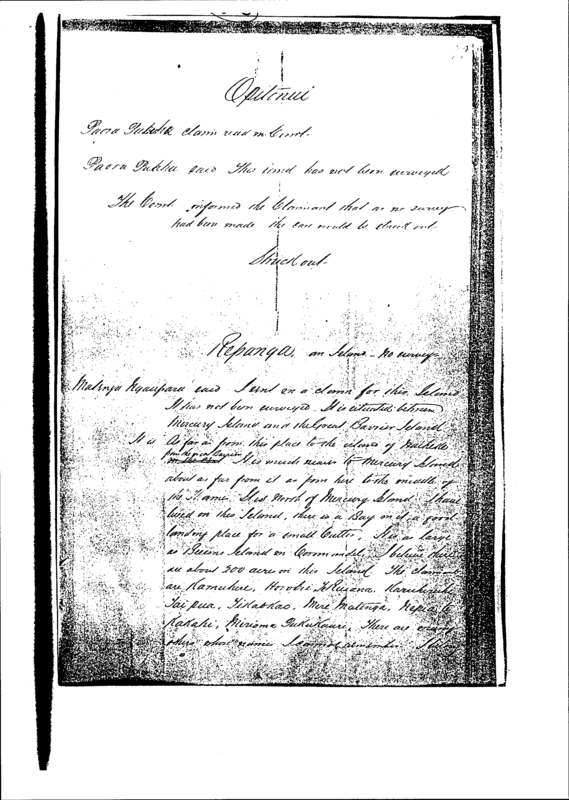 Opitonui
Paora Puteka claim read in Court.
Paora Puteka said This land has not been surveyed
The Court informed the Claimant that as no survey
had been made the case would be struck out.
Struck out.
Repanga, an Island - No survey
Matenga Ngaupara said I sent in a claim for this Island
It has not been surveyed. It is situated between
Mercury Island and the Great Barrier Island
It is As far as from this place to the island of
from the great Barrier
It is much nearer to Mercury Island
about as far from it as from here to the middle of
the Thames. It is North of Mercury Island. I have
lived on this Island, there is a Bay on it a good
landing place for a small Cutter, It is as large
as Island in Coromandel. I believe there
are about 200 acres on this Island. The
are Kamuhere, Horobie
Taipua, Tikaokao, Mere Matenga, Repeta
Kakahi, Miriama Pukukauri. There are many
others whose names I cannot remember. I